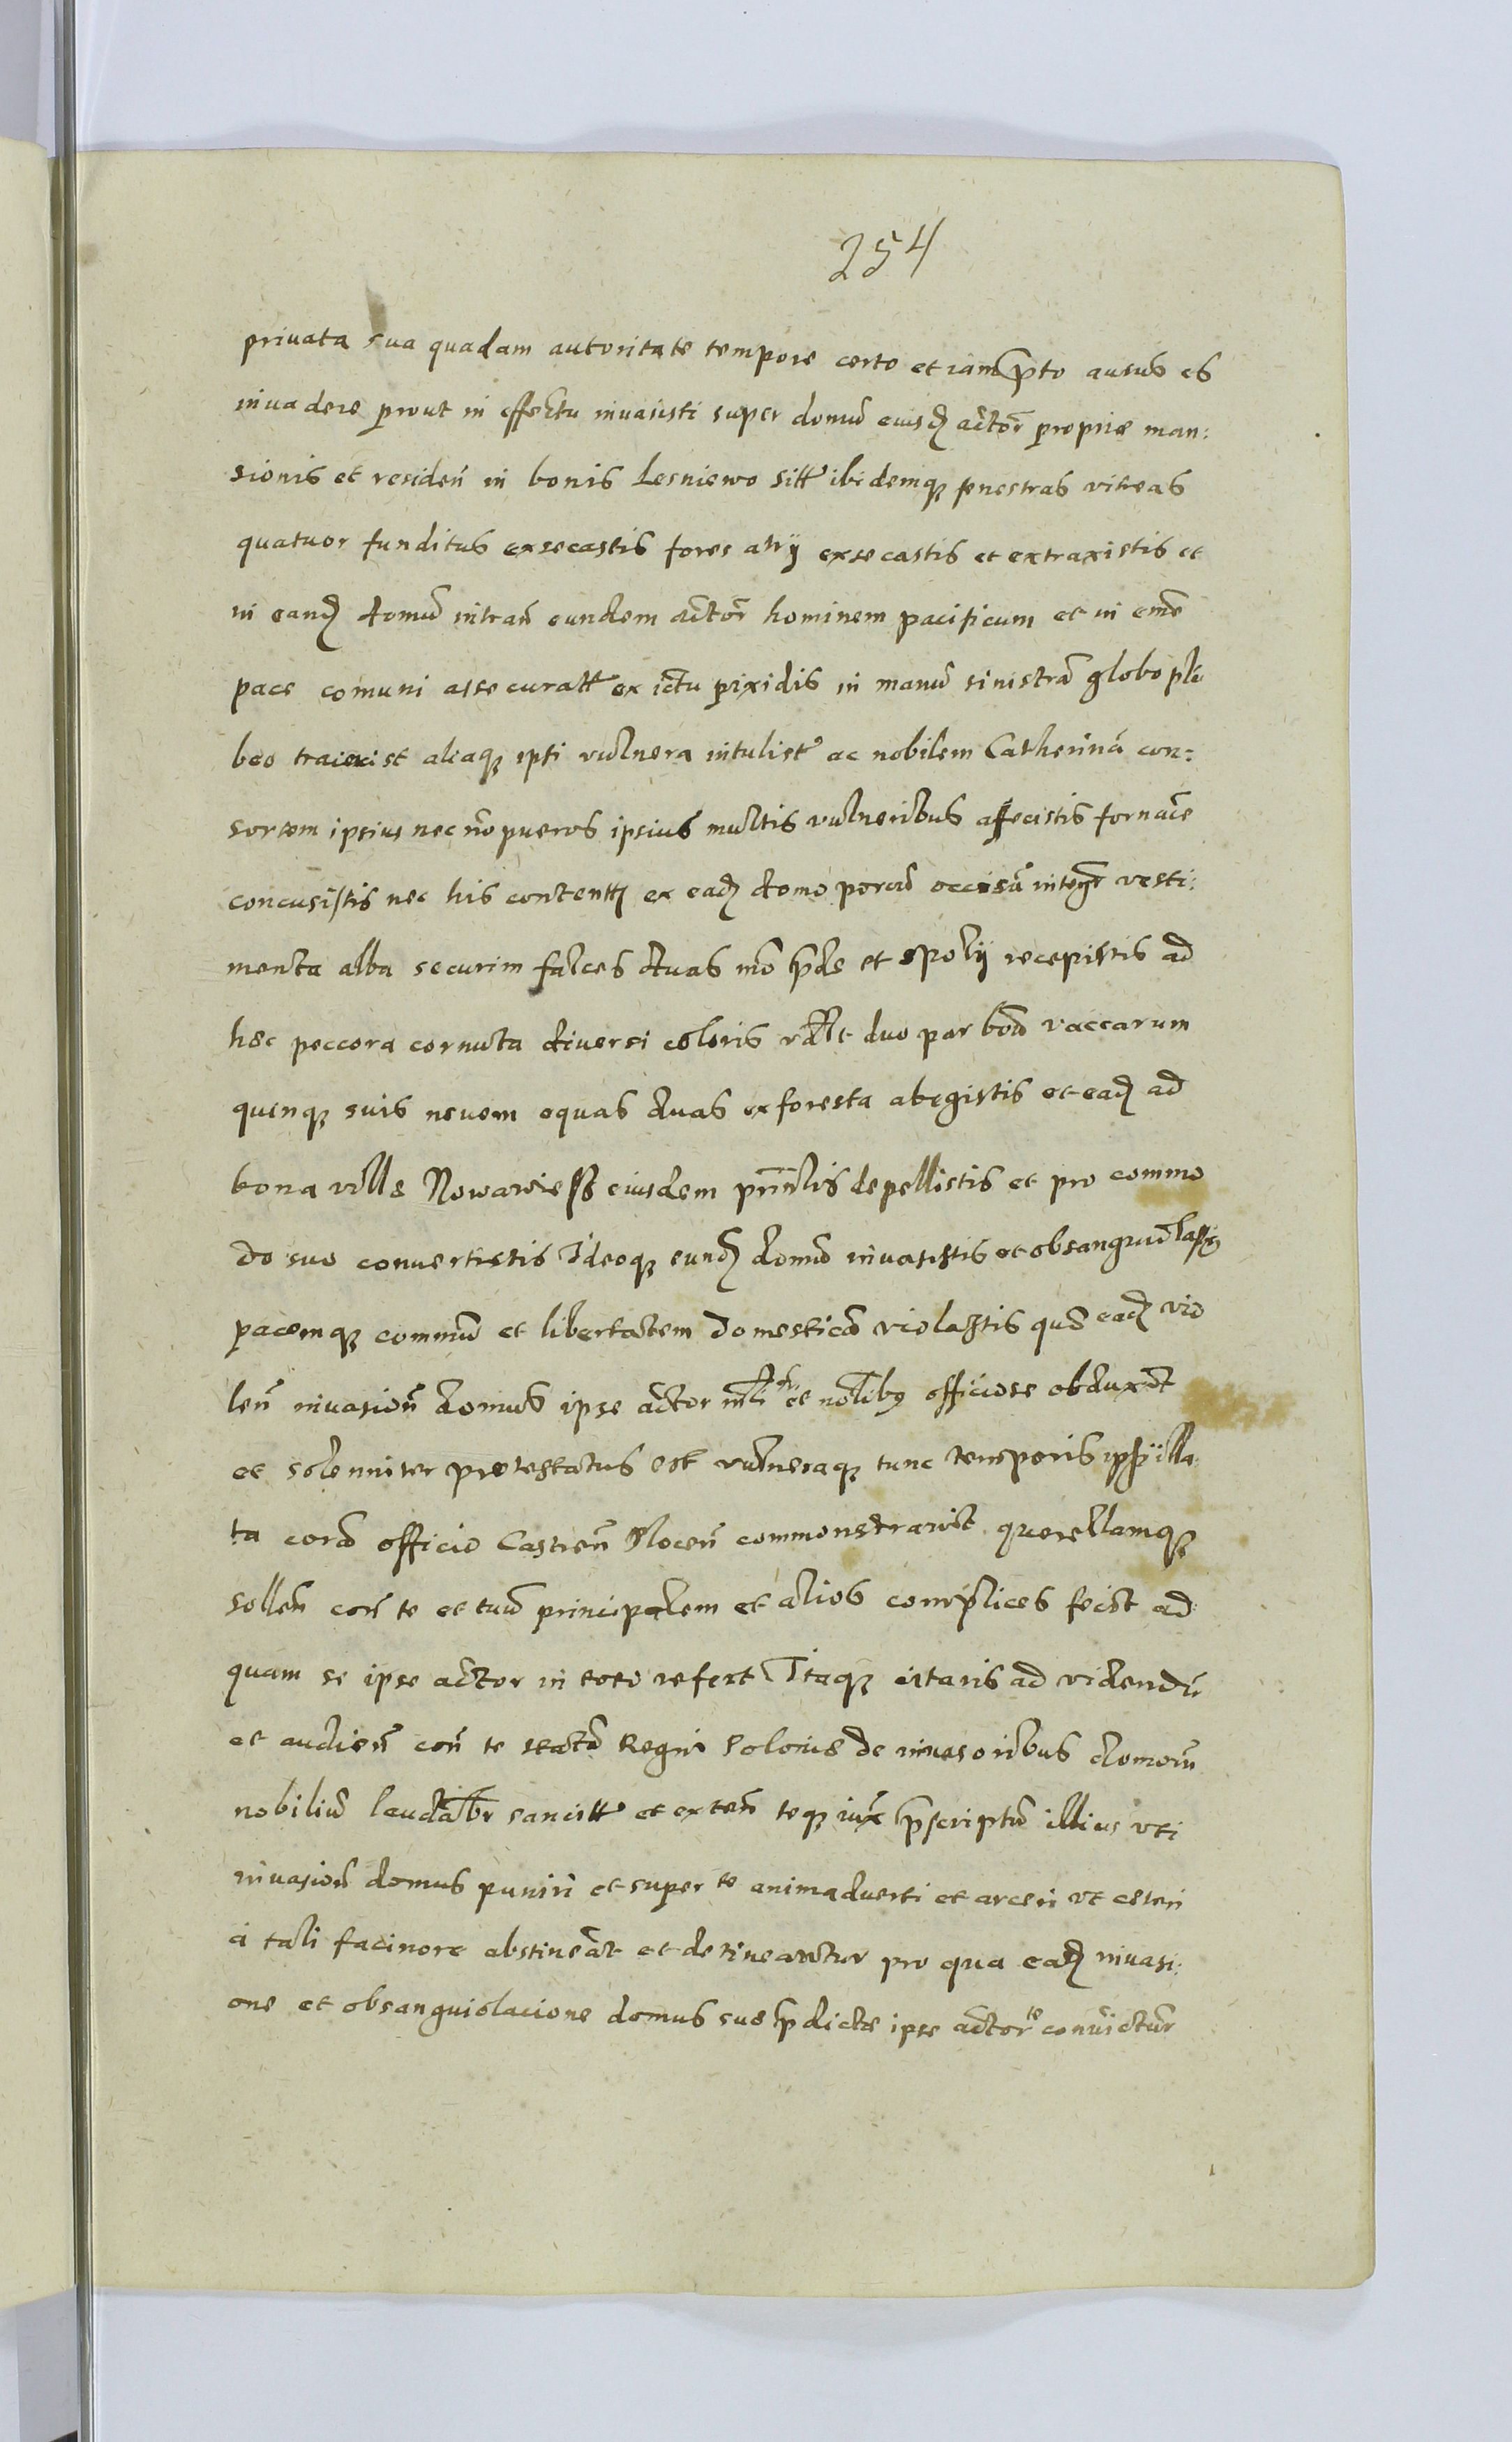 254
privata sua quadam autoritate tempore certo et iam p̄to ausus es
invadere prout in effectu invasisti super domū eiusđ actor̄ propriæ man:
sionis et residen̄ in bonis Lesniewo sitt ibidemq fenestras vitreas
quatuor funditus exsecastis fores atrij exsecastis et extraxistis et
in eanđ domū intran̄ eundem actor̄ hominem pacificum et in om̄e
pace comuni assecuratt ex ictu pixidis in manū sinistrā globo plū
beo traiecist aliaq ipsi vulnera intulist ac nobilem Catherinā con:
sortem ipsius nec nō pueros ipsius multis vulneribus affecistis fornace
concusistis nec his contentt ex eađ domo porcū occisū integr̄ vesti:
menta alba securim falces duas mō p̄de et spolij recepistis ad
hæc peccora cornuta diversi coloris vđlt duo par boū vaccarum
quinq suis novem equas duas ex foresta abegistis et eađ ad
bona villæ Nowawiess eiusdem prin̄lis depellistis et pro commo
do suo convertistis Ideoq eunđ domū invasistis et obsanguiolastis
pacemq commū et libertatem domesticā violastis quā eađ vio
len̄ invasion̄ domus ipse actor ml̄i et nōlibq officiose obduxit
et solenniter protestatus est vulneraq tunc temporis ipsi illa
ta corā officio Castren̄ Plocen̄ commonstravit querellamq
sollen̄ con̄ te et tuū principalem et alios complices fecit ad
quam se ipse actor in toto refert Itaq citaris ad videndū
et audien̄ con̄ te statū Regni Poloniæ de invasoribus domorū
nobiliū laudabr̄ sancitt et exten̄ teq iux̄ p̄scriptū illius uti
invasion̄ domus puniri et super te animadverti et arceri ut cæteri
à tali facinore abstineāt et detineantur pro qua eađ invasi:
one et obsanguiolacione domus suæ p̄dictæ ipse actor te convictur̄